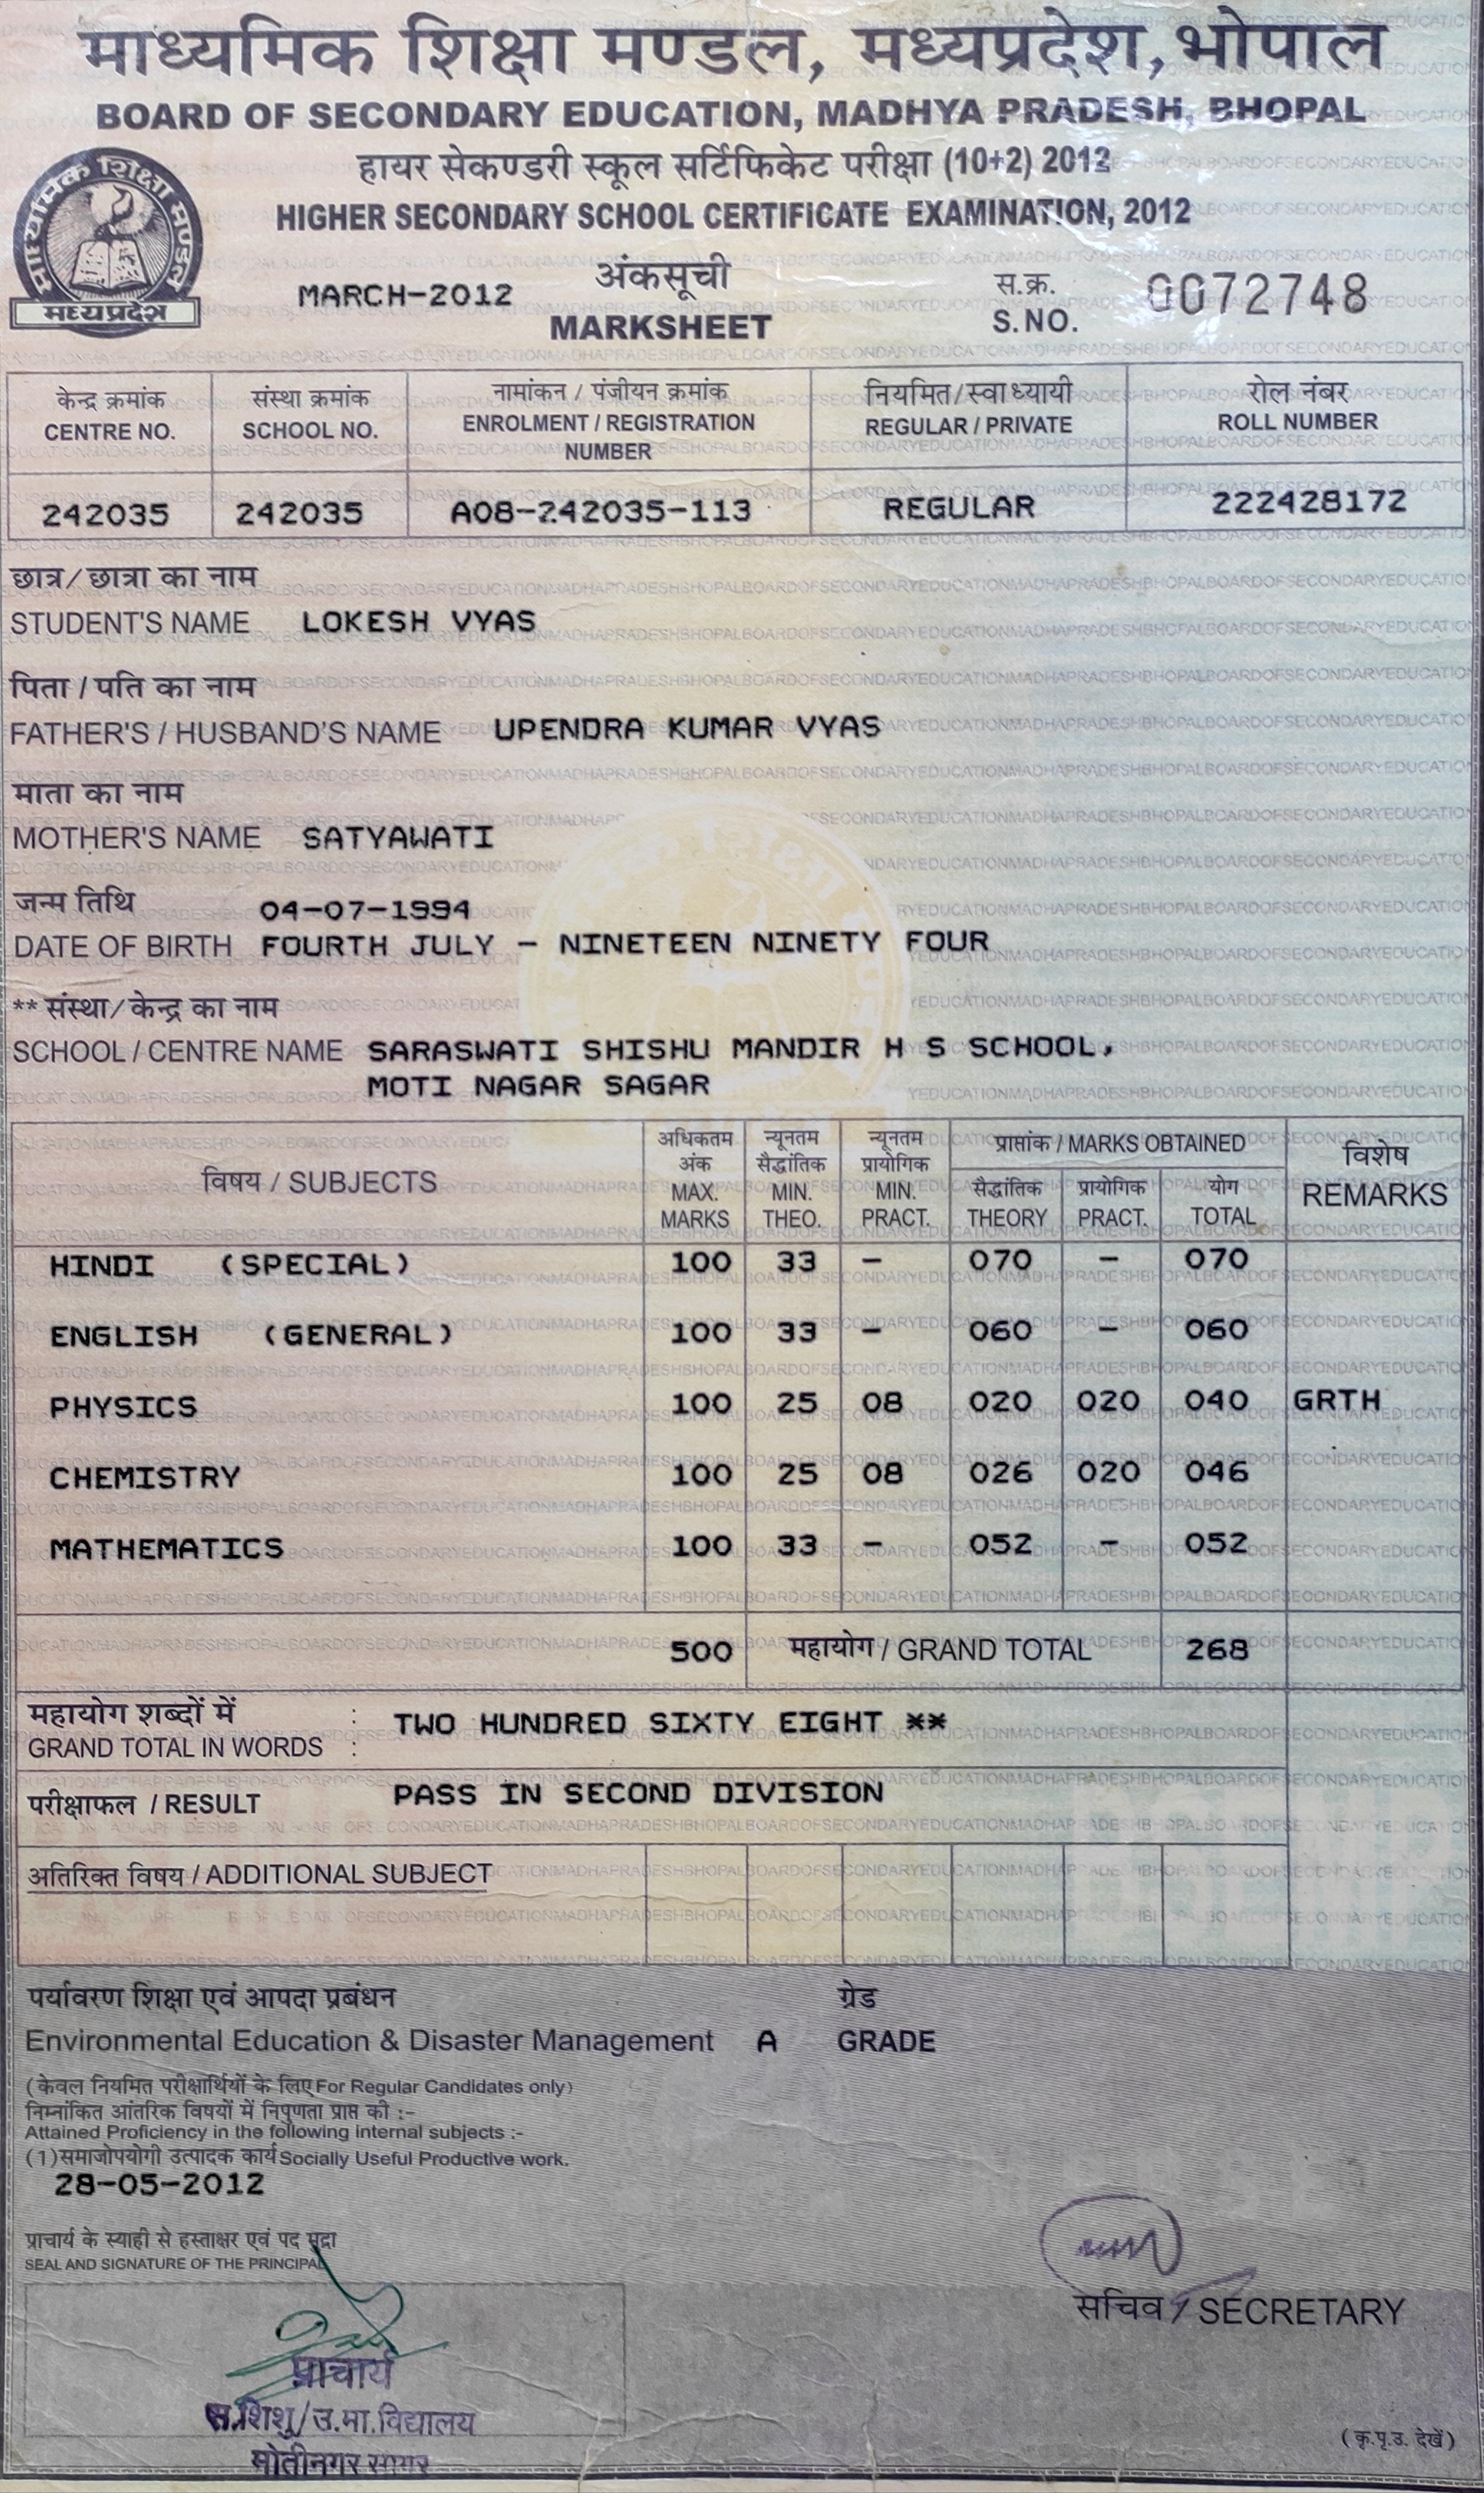 माध्यमिक शिक्षा मण्डल, मध्यप्रदेश, भोपाल
BOARD OF SECONDARY EDUCATION, MADHYA PRADESH, BHOPAL
हायर सेकण्डरी स्कूल सर्टिफिकेट परीक्षा (10+2) 2012
HIGHER SECONDARY SCHOOL CERTIFICATE EXAMINATION, 2012
माध्यमिक शिक्षा मण्डल
मध्यप्रदेश
MARCH-2012
अंकसूची
MARKSHEET
स.क्र.
S.NO. 0072748
केन्द्र क्रमांक संस्था क्रमांक नामांकन / पंजीयन क्रमांक नियमित/स्वाध्यायी रोल नंबर
CENTRE NO. SCHOOL NO. ENROLMENT / REGISTRATION NUMBER REGULAR / PRIVATE ROLL NUMBER
242035 242035 A08-242035-113 REGULAR 222428172
छात्र/छात्रा का नाम
STUDENT'S NAME LOKESH VYAS
पिता / पति का नाम
FATHER'S / HUSBAND'S NAME UPENDRA KUMAR VYAS
माता का नाम
MOTHER'S NAME SATYAWATI
जन्म तिथि 04-07-1994
DATE OF BIRTH FOURTH JULY - NINETEEN NINETY FOUR
** संस्था/केन्द्र का नाम
SCHOOL / CENTRE NAME SARASWATI SHISHU MANDIR H S SCHOOL,
MOTI NAGAR SAGAR
विषय / SUBJECTS
अधिकतम अंक MAX. MARKS
न्यूनतम सैद्धांतिक MIN. THEO.
न्यूनतम प्रायोगिक MIN. PRACT.
प्राप्तांक / MARKS OBTAINED
सैद्धांतिक THEORY
प्रायोगिक PRACT.
योग TOTAL
विशेष REMARKS
HINDI (SPECIAL) 100 33 - 070 - 070
ENGLISH (GENERAL) 100 33 - 060 - 060
PHYSICS 100 25 08 020 020 040 GRTH
CHEMISTRY 100 25 08 026 020 046
MATHEMATICS 100 33 - 052 - 052
500 महायोग / GRAND TOTAL 268
महायोग शब्दों में :
GRAND TOTAL IN WORDS : TWO HUNDRED SIXTY EIGHT **
परीक्षाफल / RESULT PASS IN SECOND DIVISION
अतिरिक्त विषय / ADDITIONAL SUBJECT
पर्यावरण शिक्षा एवं आपदा प्रबंधन ग्रेड
Environmental Education & Disaster Management A GRADE
(केवल नियमित परीक्षार्थियों के लिए For Regular Candidates only)
निम्नांकित आंतरिक विषयों में निपुणता प्राप्त की :-
Attained Proficiency in the following internal subjects :-
(1) समाजोपयोगी उत्पादक कार्य Socially Useful Productive work.
28-05-2012
प्राचार्य के स्याही से हस्ताक्षर एवं पद मुद्रा
SEAL AND SIGNATURE OF THE PRINCIPAL
सचिव / SECRETARY
प्राचार्य
स.शिशु/उ.मा.विद्यालय
मोतीनगर सागर
(कृ.पृ.उ. देखें)